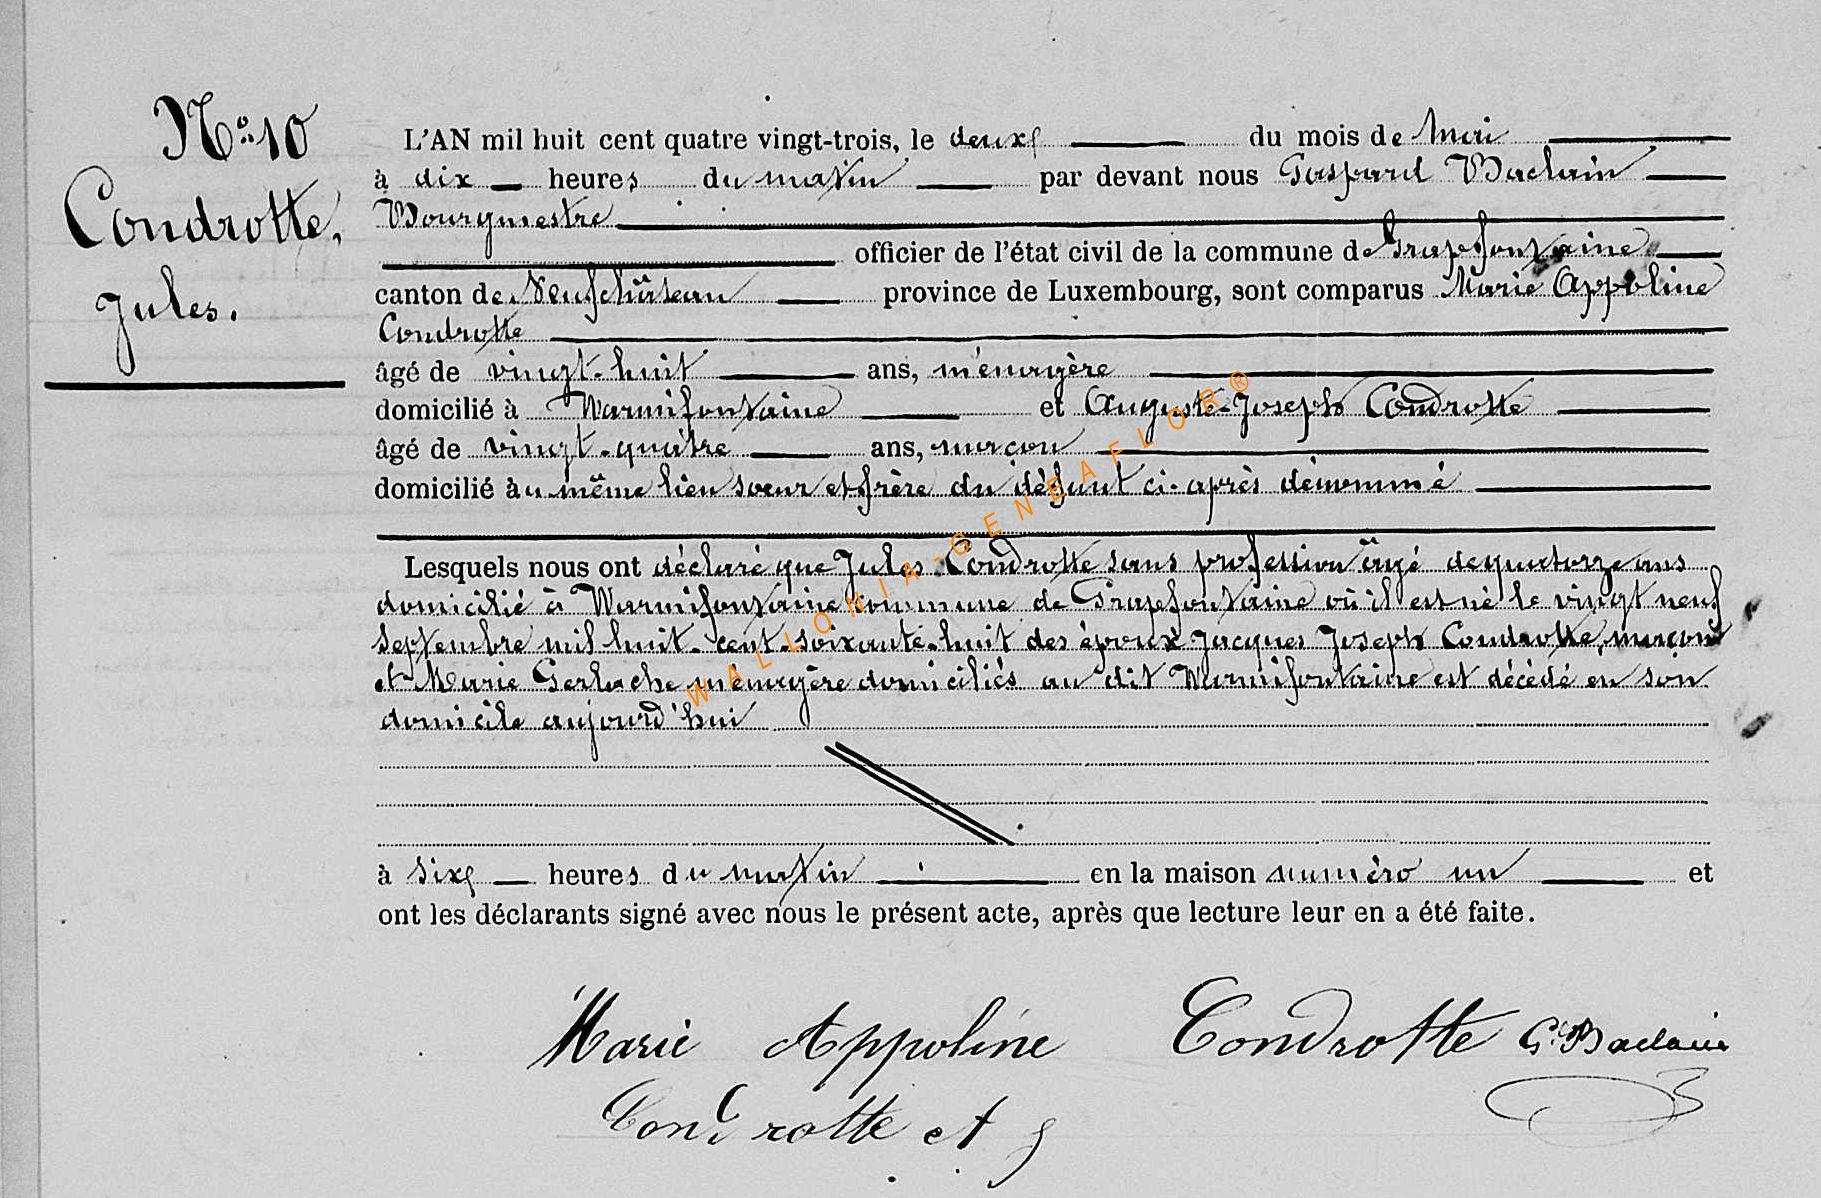 N° 10
Condrotte,
Jules.
L'AN mil huit cent quatre vingt-trois, le deux du mois de Mai
à dix heures du matin par devant nous Gaspard Baclain
Bourgmestre
officier de l'état civil de la commune de Grapfontaine
canton de Neufchâteau province de Luxembourg, sont comparus Marie Appoline
Condrotte
âgé de vingt-huit ans, ménagère
domicilié à Warmifontaine et Auguste-Joseph Condrotte
âgé de vingt-quatre ans, maçon
domicilié au même lieu soeur et frère du défunt ci-après dénommé
Lesquels nous ont déclaré que Jules Condrotte sans profession âgé de quatorze ans
domicilié à Warmifontaine commune de Grapfontaine où il est né le vingt neuf
septembre mil huit-cent-soixante-huit des époux Jacques Joseph Condrotte, maçon
et Marie Gerlache ménagère domiciliés au dit Warmifontaine est décédé en son
domicile aujourd'hui
à six heures du matin en la maison numéro un et
ont les déclarants signé avec nous le présent acte, après que lecture leur en a été faite.
Marie Appoline Condrotte G. Baclain
Condrotte A J
WALLONIA-GENEAFLOR®